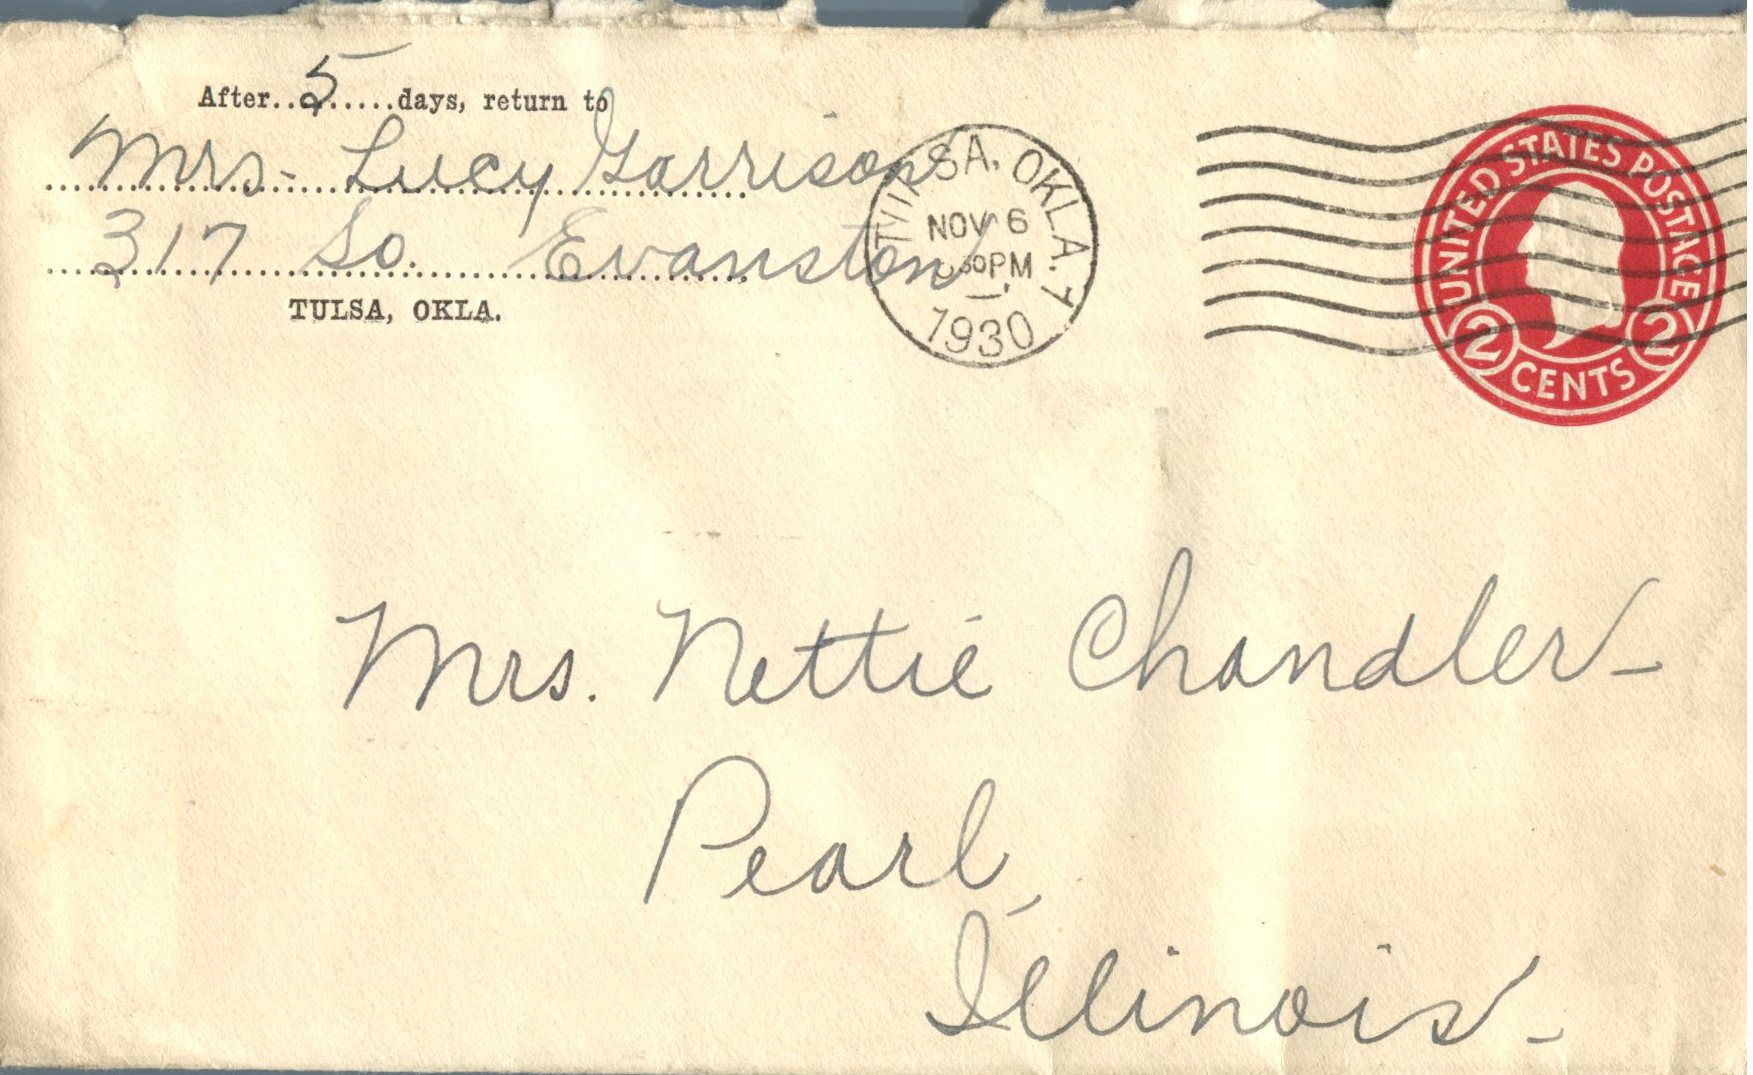 After..5.....days, return to
Mrs- Lucy Garrison
317 So. Evanston
TULSA, OKLA.
TULSA, OKLA. 1
NOV 6
30 PM
1930
UNITED STATES POSTAGE
2 2
CENTS
Mrs. Nettie Chandler-
Pearl,
Illinois-